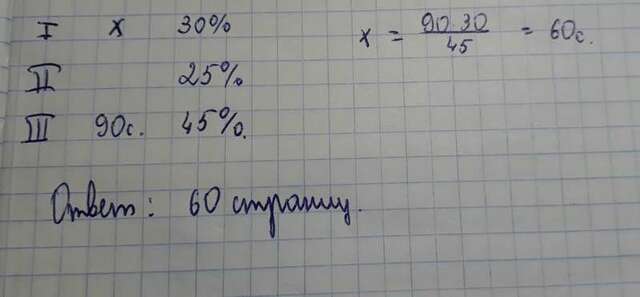 I x 30% x = 90 30 / 45 = 60с.
II 25%
III 90с. 45%.
Ответ: 60 страниц.